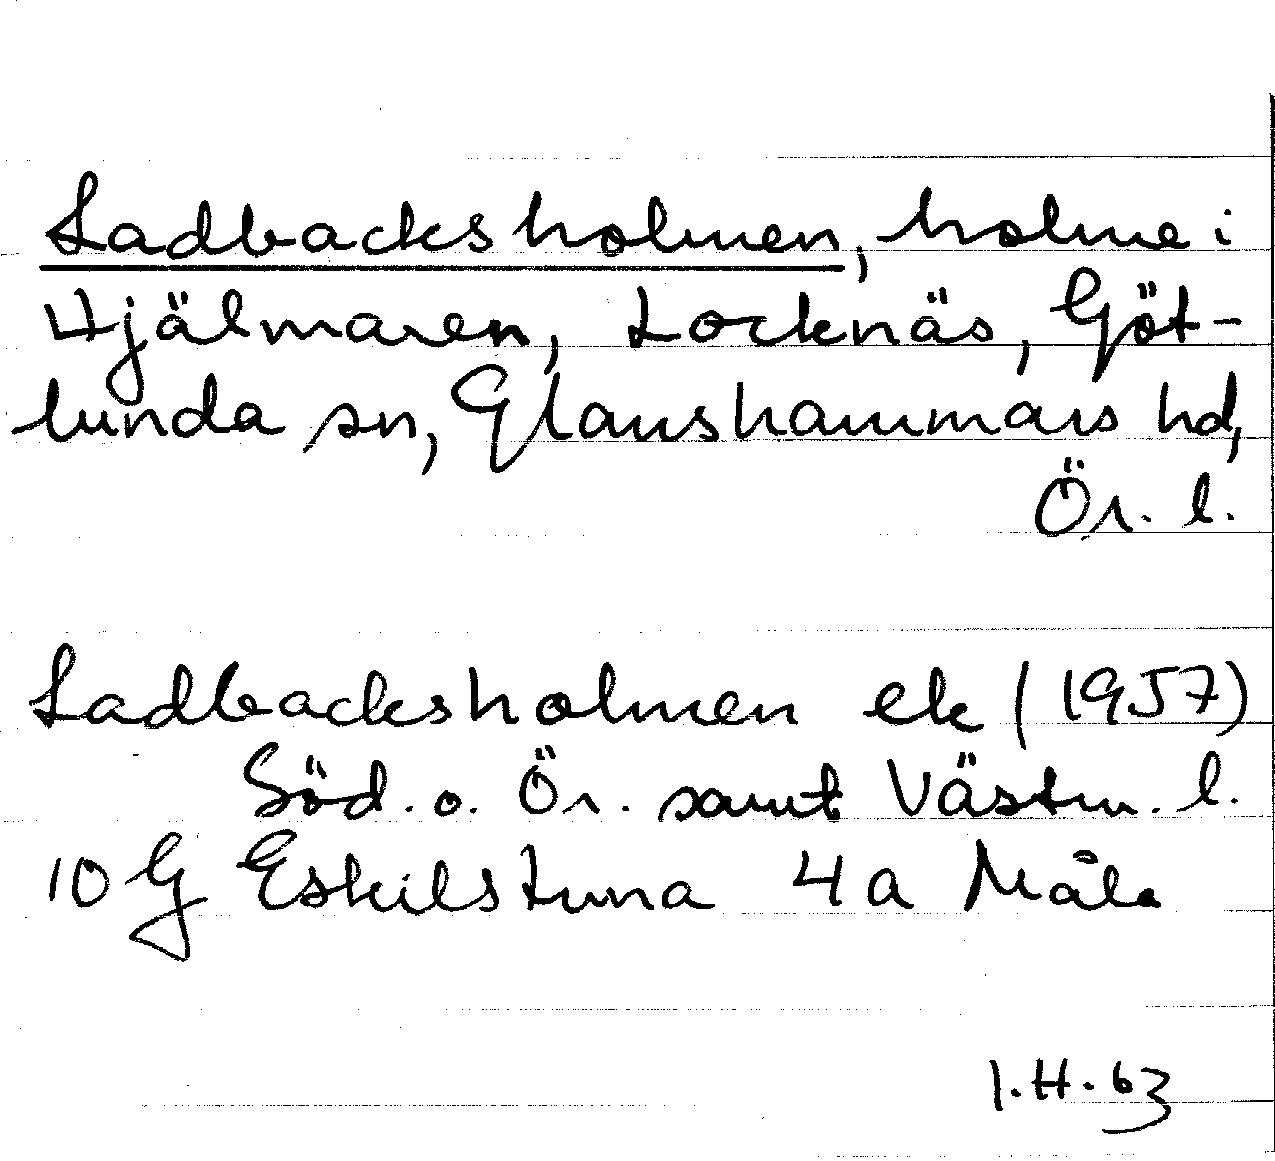 Ladbacksholmen, holme i
Hjälmaren, Locknäs, Göt-
lunda sn, Glanshammars hd,
Ör. l.
Ladbacksholmen ek (1957)
Söd. o. Ör. samt Västm. l.
10 G Eskilstuna 4a Måla
I.H. 63